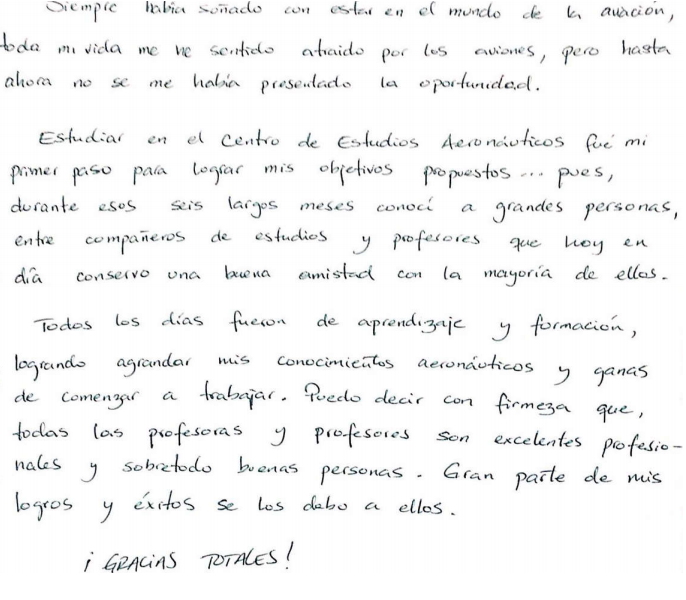 Siempre había soñado con estar en el mundo de la aviación,
toda mi vida me he sentido atraido por los aviones, pero hasta
ahora no se me había presentado la oportunidad.
Estudiar en el Centro de Estudios Aeronáuticos fué mi
primer paso para lograr mis objetivos propuestos... pues,
durante esos seis largos meses conocí a grandes personas,
entre compañeros de estudios y profesores que hoy en
día conservo una buena amistad con la mayoría de ellos.
Todos los días fueron de aprendizaje y formación,
logrando agrandar mis conocimientos aeronáuticos y ganas
de comenzar a trabajar. Puedo decir con firmeza que,
todas las profesoras y profesores son excelentes profesio-
nales y sobretodo buenas personas. Gran parte de mis
logros y éxitos se los debo a ellos.
¡GRACIAS TOTALES!